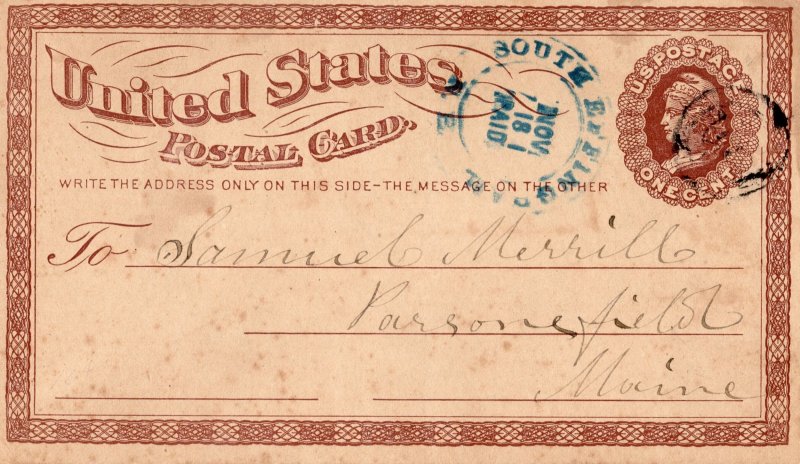 United States
POSTAL CARD.
WRITE THE ADDRESS ONLY ON THIS SIDE-THE MESSAGE ON THE OTHER
SOUTH
NOV
18
PAID
U.S. POSTAGE
ONE CENT
To Samuel Merrill
Parsonsfield
Maine